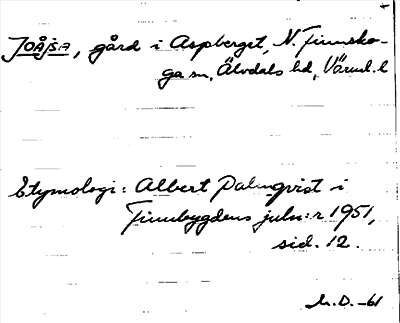 JOÅJSA, gård i Aspberget, N. Finnsko-
ga sn, Älvdals hd, Värml. l
Etymologi: Albert Palmqvist i
Finnbygdens juln:r 1951,
sid. 12.
M.D. -61